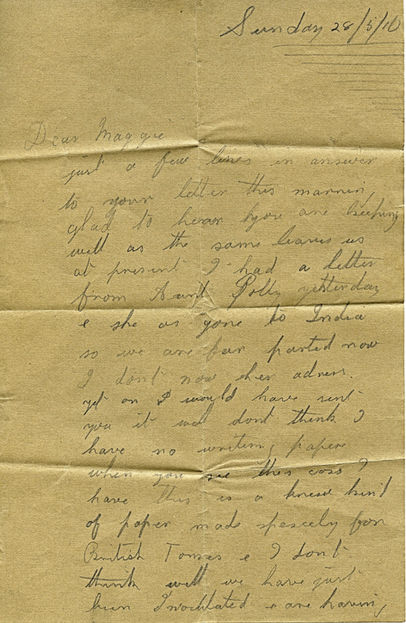 Sunday 28/5/16
Dear Maggie
just a few lines in answer
to your letter this mornin,
glad to hear you are keeping
well as the same leaves us
at present I had a letter
from Aunt Polly yesterday
& she as gone to India
so we are far parted now
I dont now her adress
yet or I would have sent
you it well dont think I
have no writing paper
when you see this coss I
have this is a knew kind
of paper made specely for
British Tomies & I dont
think well we have just
been Inoculated & are having